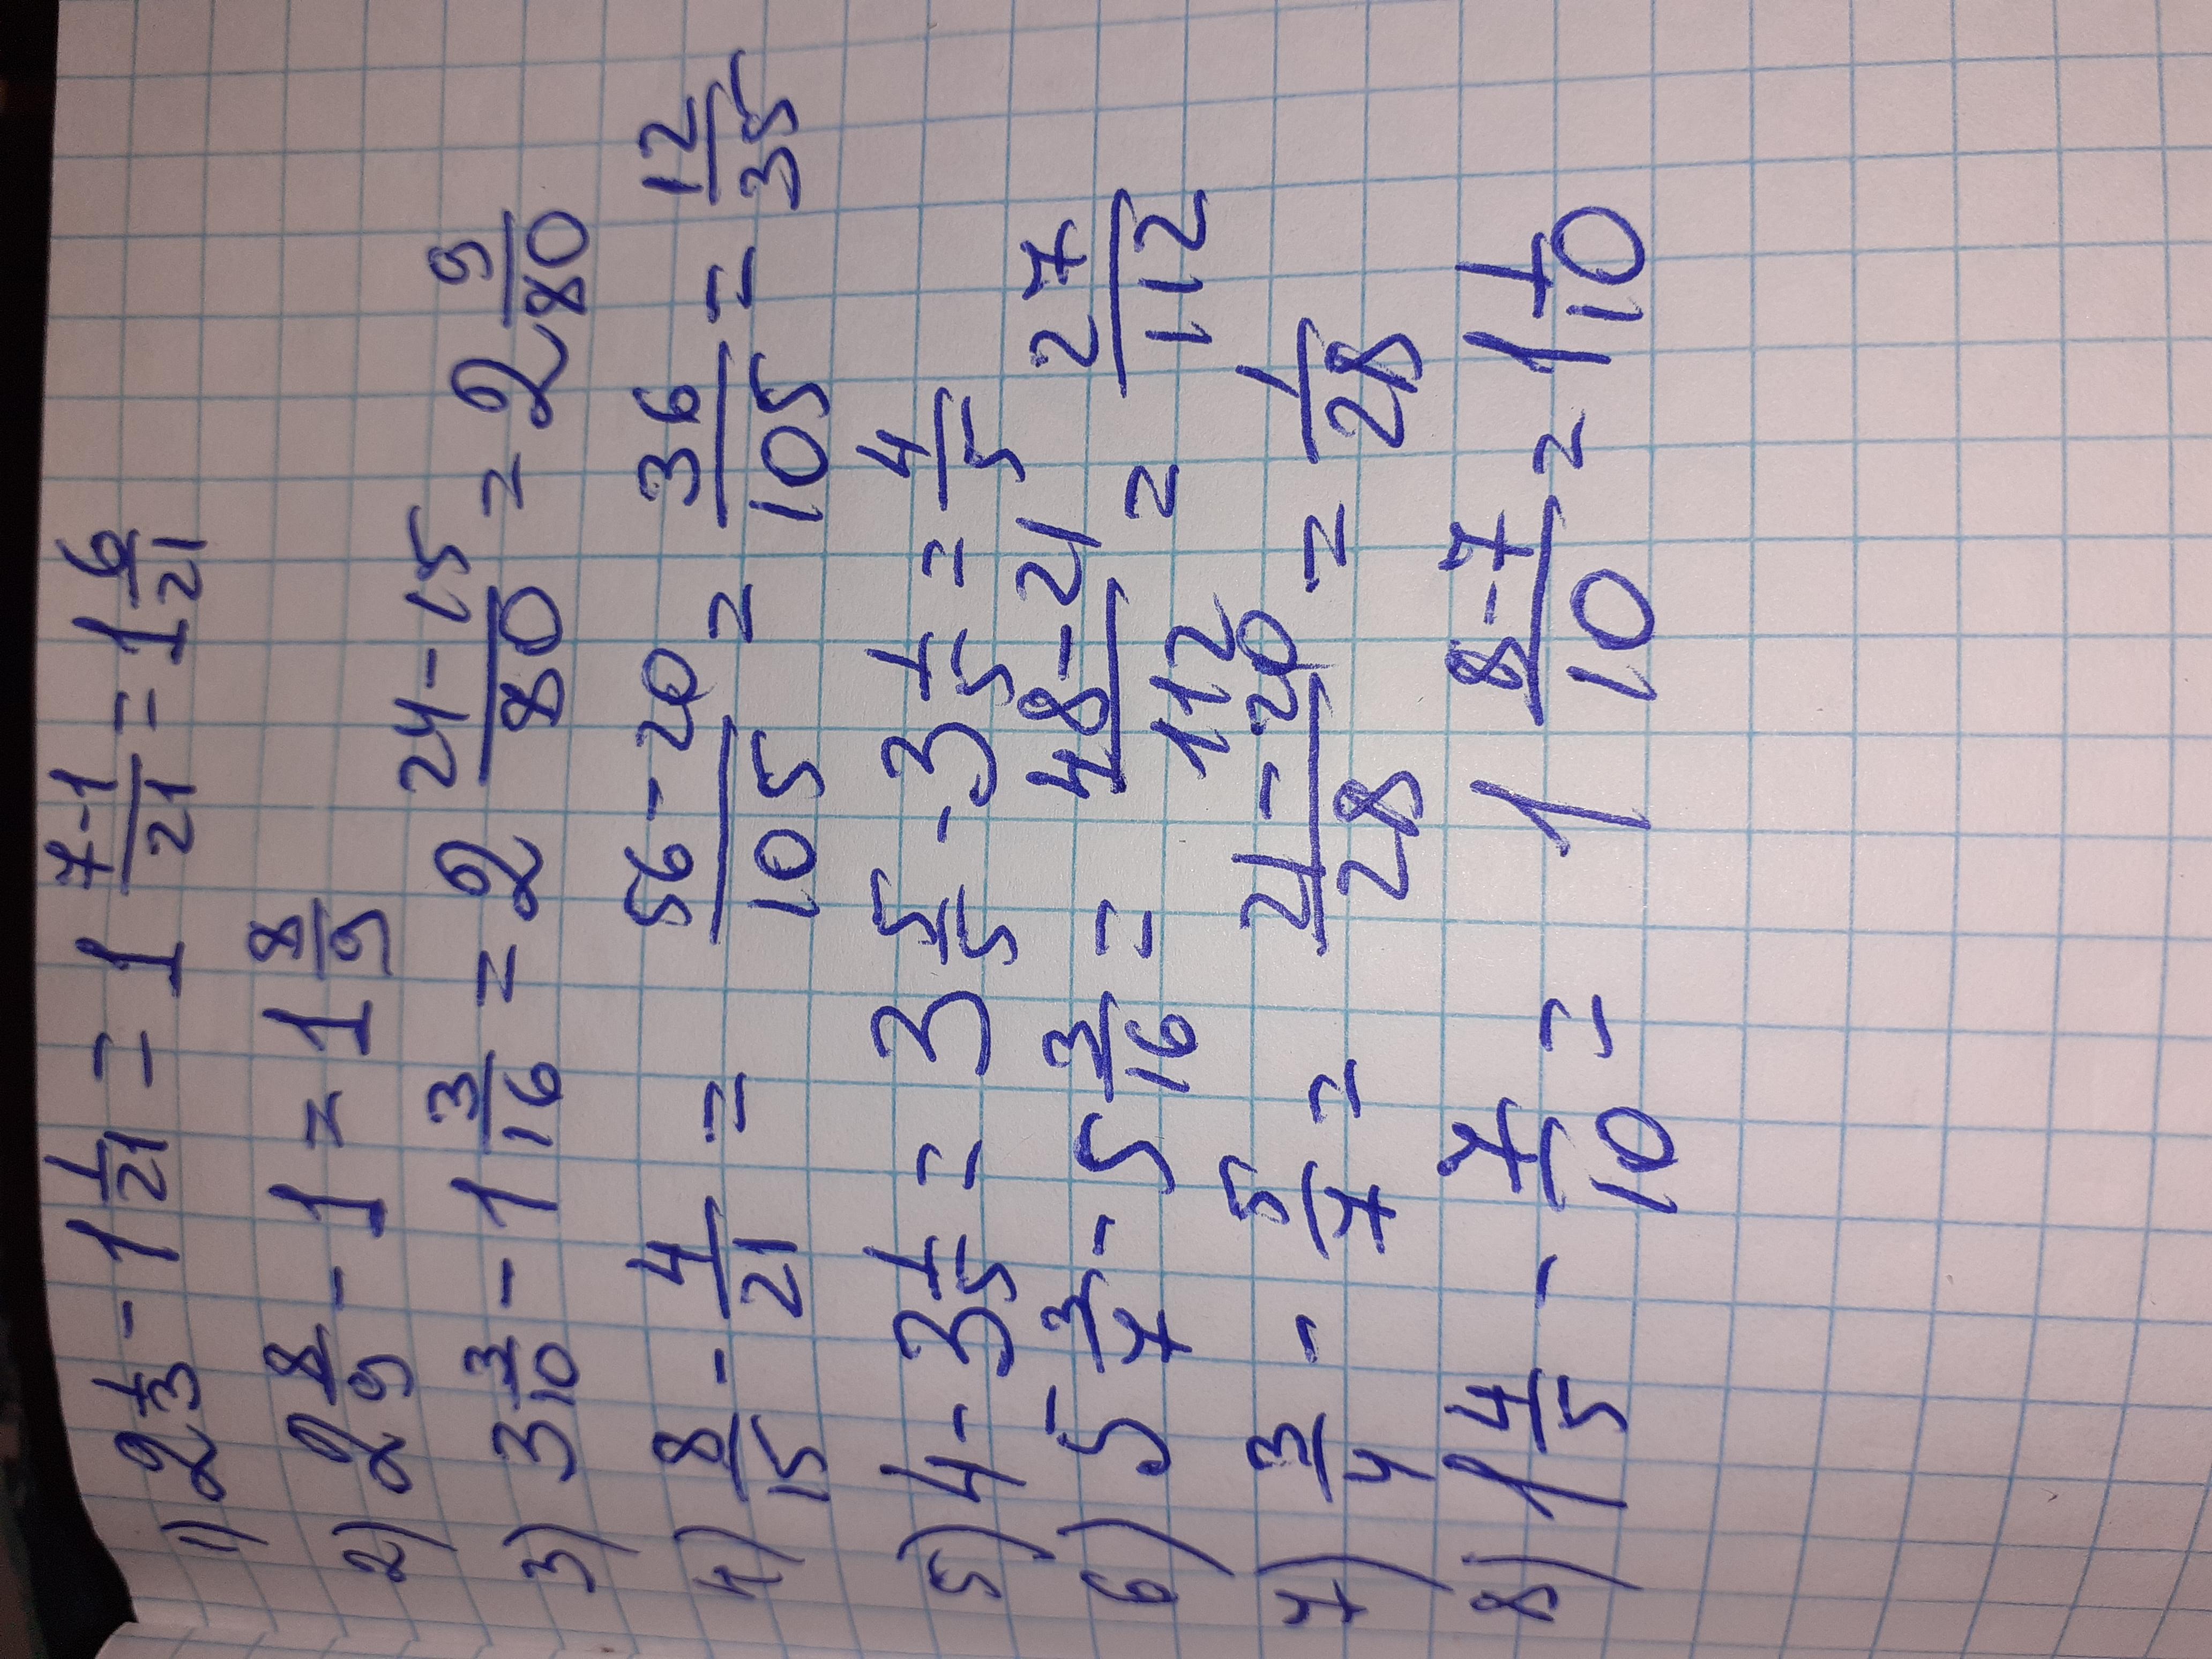 1) 2 1/3 - 1 1/21 = 1 7-1/21 = 1 6/21
2) 2 8/9 - 1 = 1 8/9
3) 3 3/10 - 1 3/16 = 2 24-15/80 = 2 9/80
4) 8/15 - 4/21 = 56-20/105 = 36/105 = 12/35
5) 4 - 3 1/5 = 3 5/5 - 3 1/5 = 4/5
6) 5 3/7 - 5 3/16 = 48-21/112 = 27/112
7) 3/4 - 5/7 = 21-20/28 = 1/28
8) 1 4/5 - 7/10 = 1 8-7/10 = 1 1/10